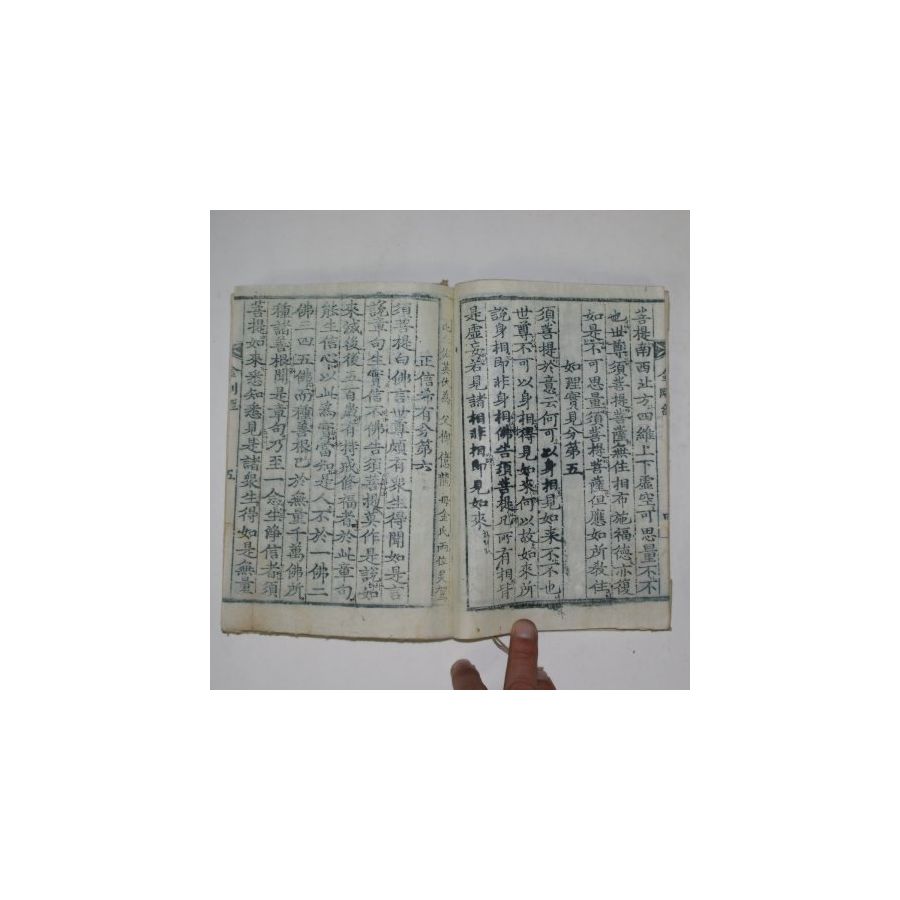 菩提南西北方四維上下虛空可思量不不
也世尊須菩提菩薩無住相布施福德亦復
如是不可思量須菩提菩薩但應如所教住
如理實見分第五
須菩提於意云何可以身相見如來不不也
世尊不可以身相得見如來何以故如來所
說身相即非身相佛告須菩提凡所有相皆
是虛妄若見諸相非相即見如來
母金氏兩位
正信希有分第六
須菩提白佛言世尊頗有衆生得聞如是言
說章句生實信不佛告須菩提莫作是說如
來滅後後五百歲有持戒修福者於此章句
能生信心以此爲實當知是人不於一佛二
佛三四五佛而種善根已於無量千萬佛所
種諸善根聞是章句乃至一念生淨信者須
菩提如來悉知悉見是諸衆生得如是無量
五